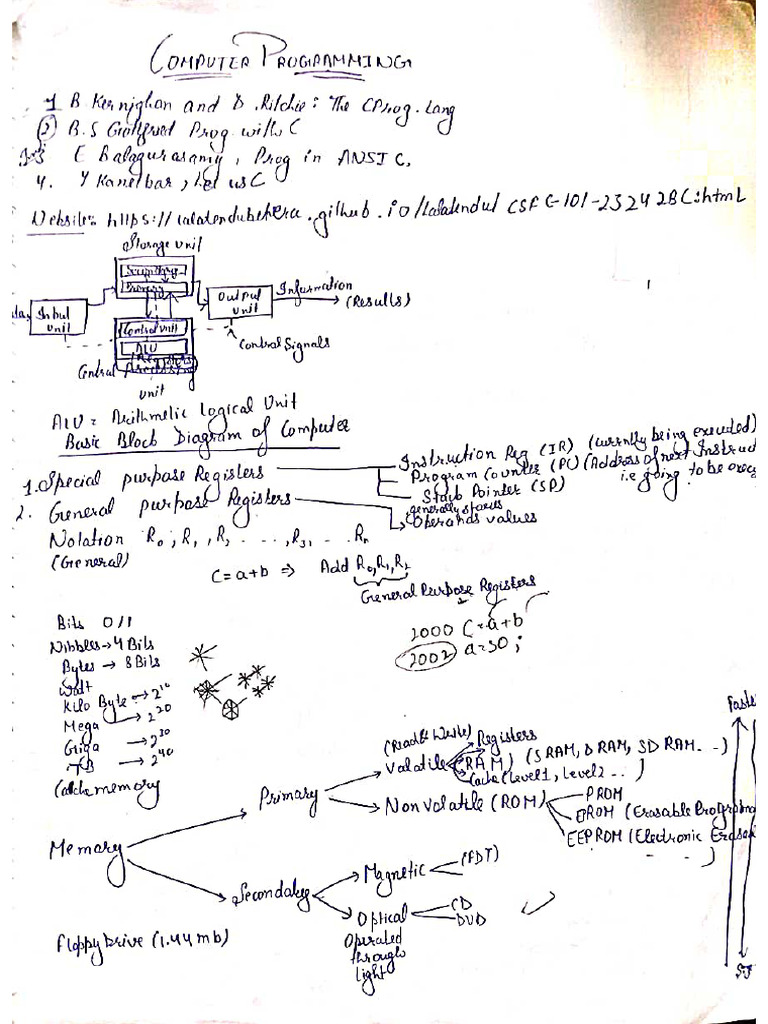 COMPUTER PROGRAMMING
1 B Kernighan and D. Ritchie: The C Prog. Lang
2) B.S Gottfried Prog with C
3 E Balagurasamy, Prog in ANSI C,
4. Y Kanetbar, Let us C
Website:- https://lalatendubehera.github.io/lalatendu/CSFC-101-23242BC.html
Storage unit
Secondary
Primary
Input unit
Output unit
Information
(Results)
Control unit
ALU
Registers
Control Signals
Central Processing
unit
ALU = Arithmetic Logical Unit
Basic Block Diagram of Computer
1. Special purpose Registers
Instruction Reg (IR) (Currntly being executed)
Program Counter (PC) (Address of next Instruc
i.e going to be exec
Stack Pointer (SP)
2. General purpose Registers
generally stores
Operands values
Notation R0, R1, R2 ...., R31, ... Rn
(General)
C = a+b ⇒ Add R0, R1, R2
General Purpose Registers
2000 C=a+b
2002 a=30;
Bits 0/1
Nibbles → 4 Bits
Bytes → 8 Bits
Kilo Byte → 2^10
Mega → 2^20
Giga → 2^30
TB → 2^40
Cache memory
Faste
Memory
Primary
(Read & Write)
Volatile (RAM) (SRAM, DRAM, SD RAM...)
Registers
Cache (Level1, Level2 ...)
Nonvolatile (ROM)
PROM
EPROM (Erasable Programa
EEPROM (Electronic Erasea
)
Secondary
Magnetic
Optical
CD
DVD
Operated
through
light
Floppy Drive (1.44 mb)